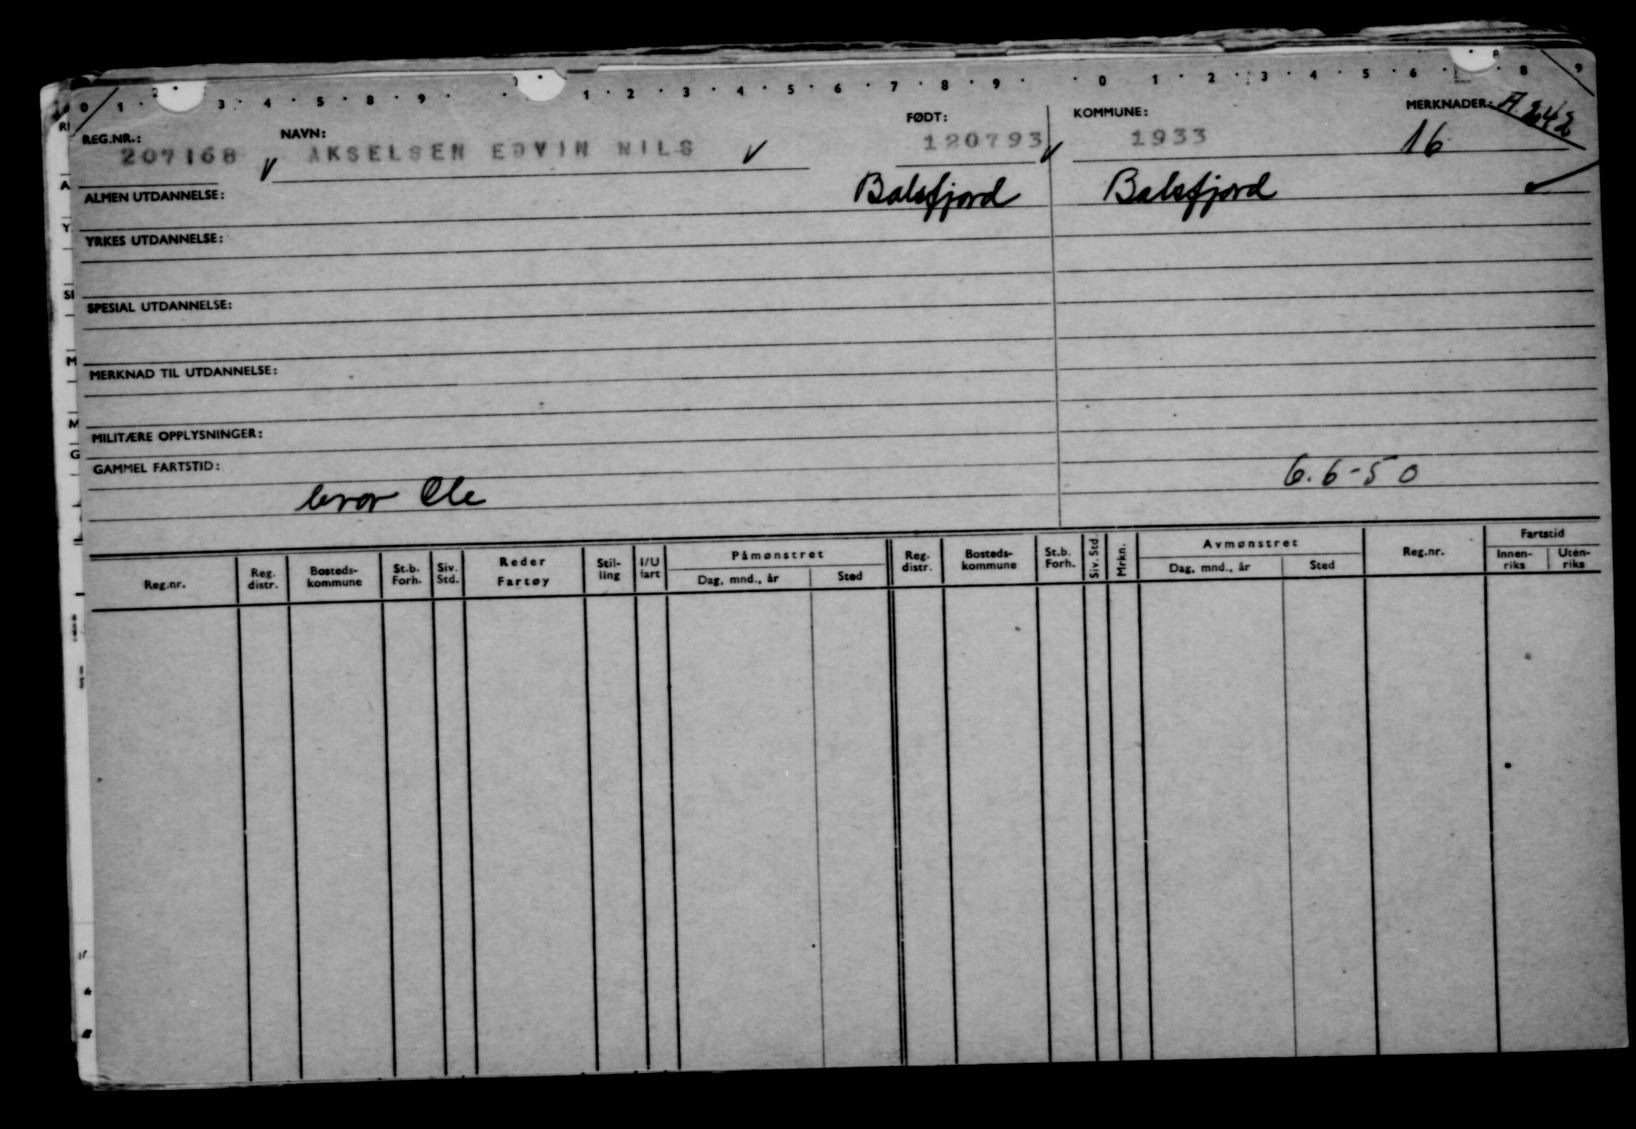 0 1 2 3 4 5 8 9 1 2 3 4 5 6 7 8 9 0 1 2 3 4 5 6 8 8 9
REG.NR.: NAVN: FØDT: KOMMUNE: MERKNADER: A.242
207168 AKSELSEN EDVIN NILS 120793 1933 16
ALMEN UTDANNELSE: Balsfjord Balsfjord
YRKES UTDANNELSE:
SPESIAL UTDANNELSE:
MERKNAD TIL UTDANNELSE:
MILITÆRE OPPLYSNINGER:
GAMMEL FARTSTID:
bror Ole 6.6-50
Reg.nr. Reg. distr. Bosteds-kommune St.b. Forh. Siv. Std. Reder Fartøy Stil-ling I/U fart Påmønstret Dag, mnd., år Sted Reg. distr. Bosteds-kommune St.b. Forh. Siv. Std. Mrkn. Avmønstret Dag, mnd., år Sted Reg.nr. Fartstid Innen-riks Uten-riks